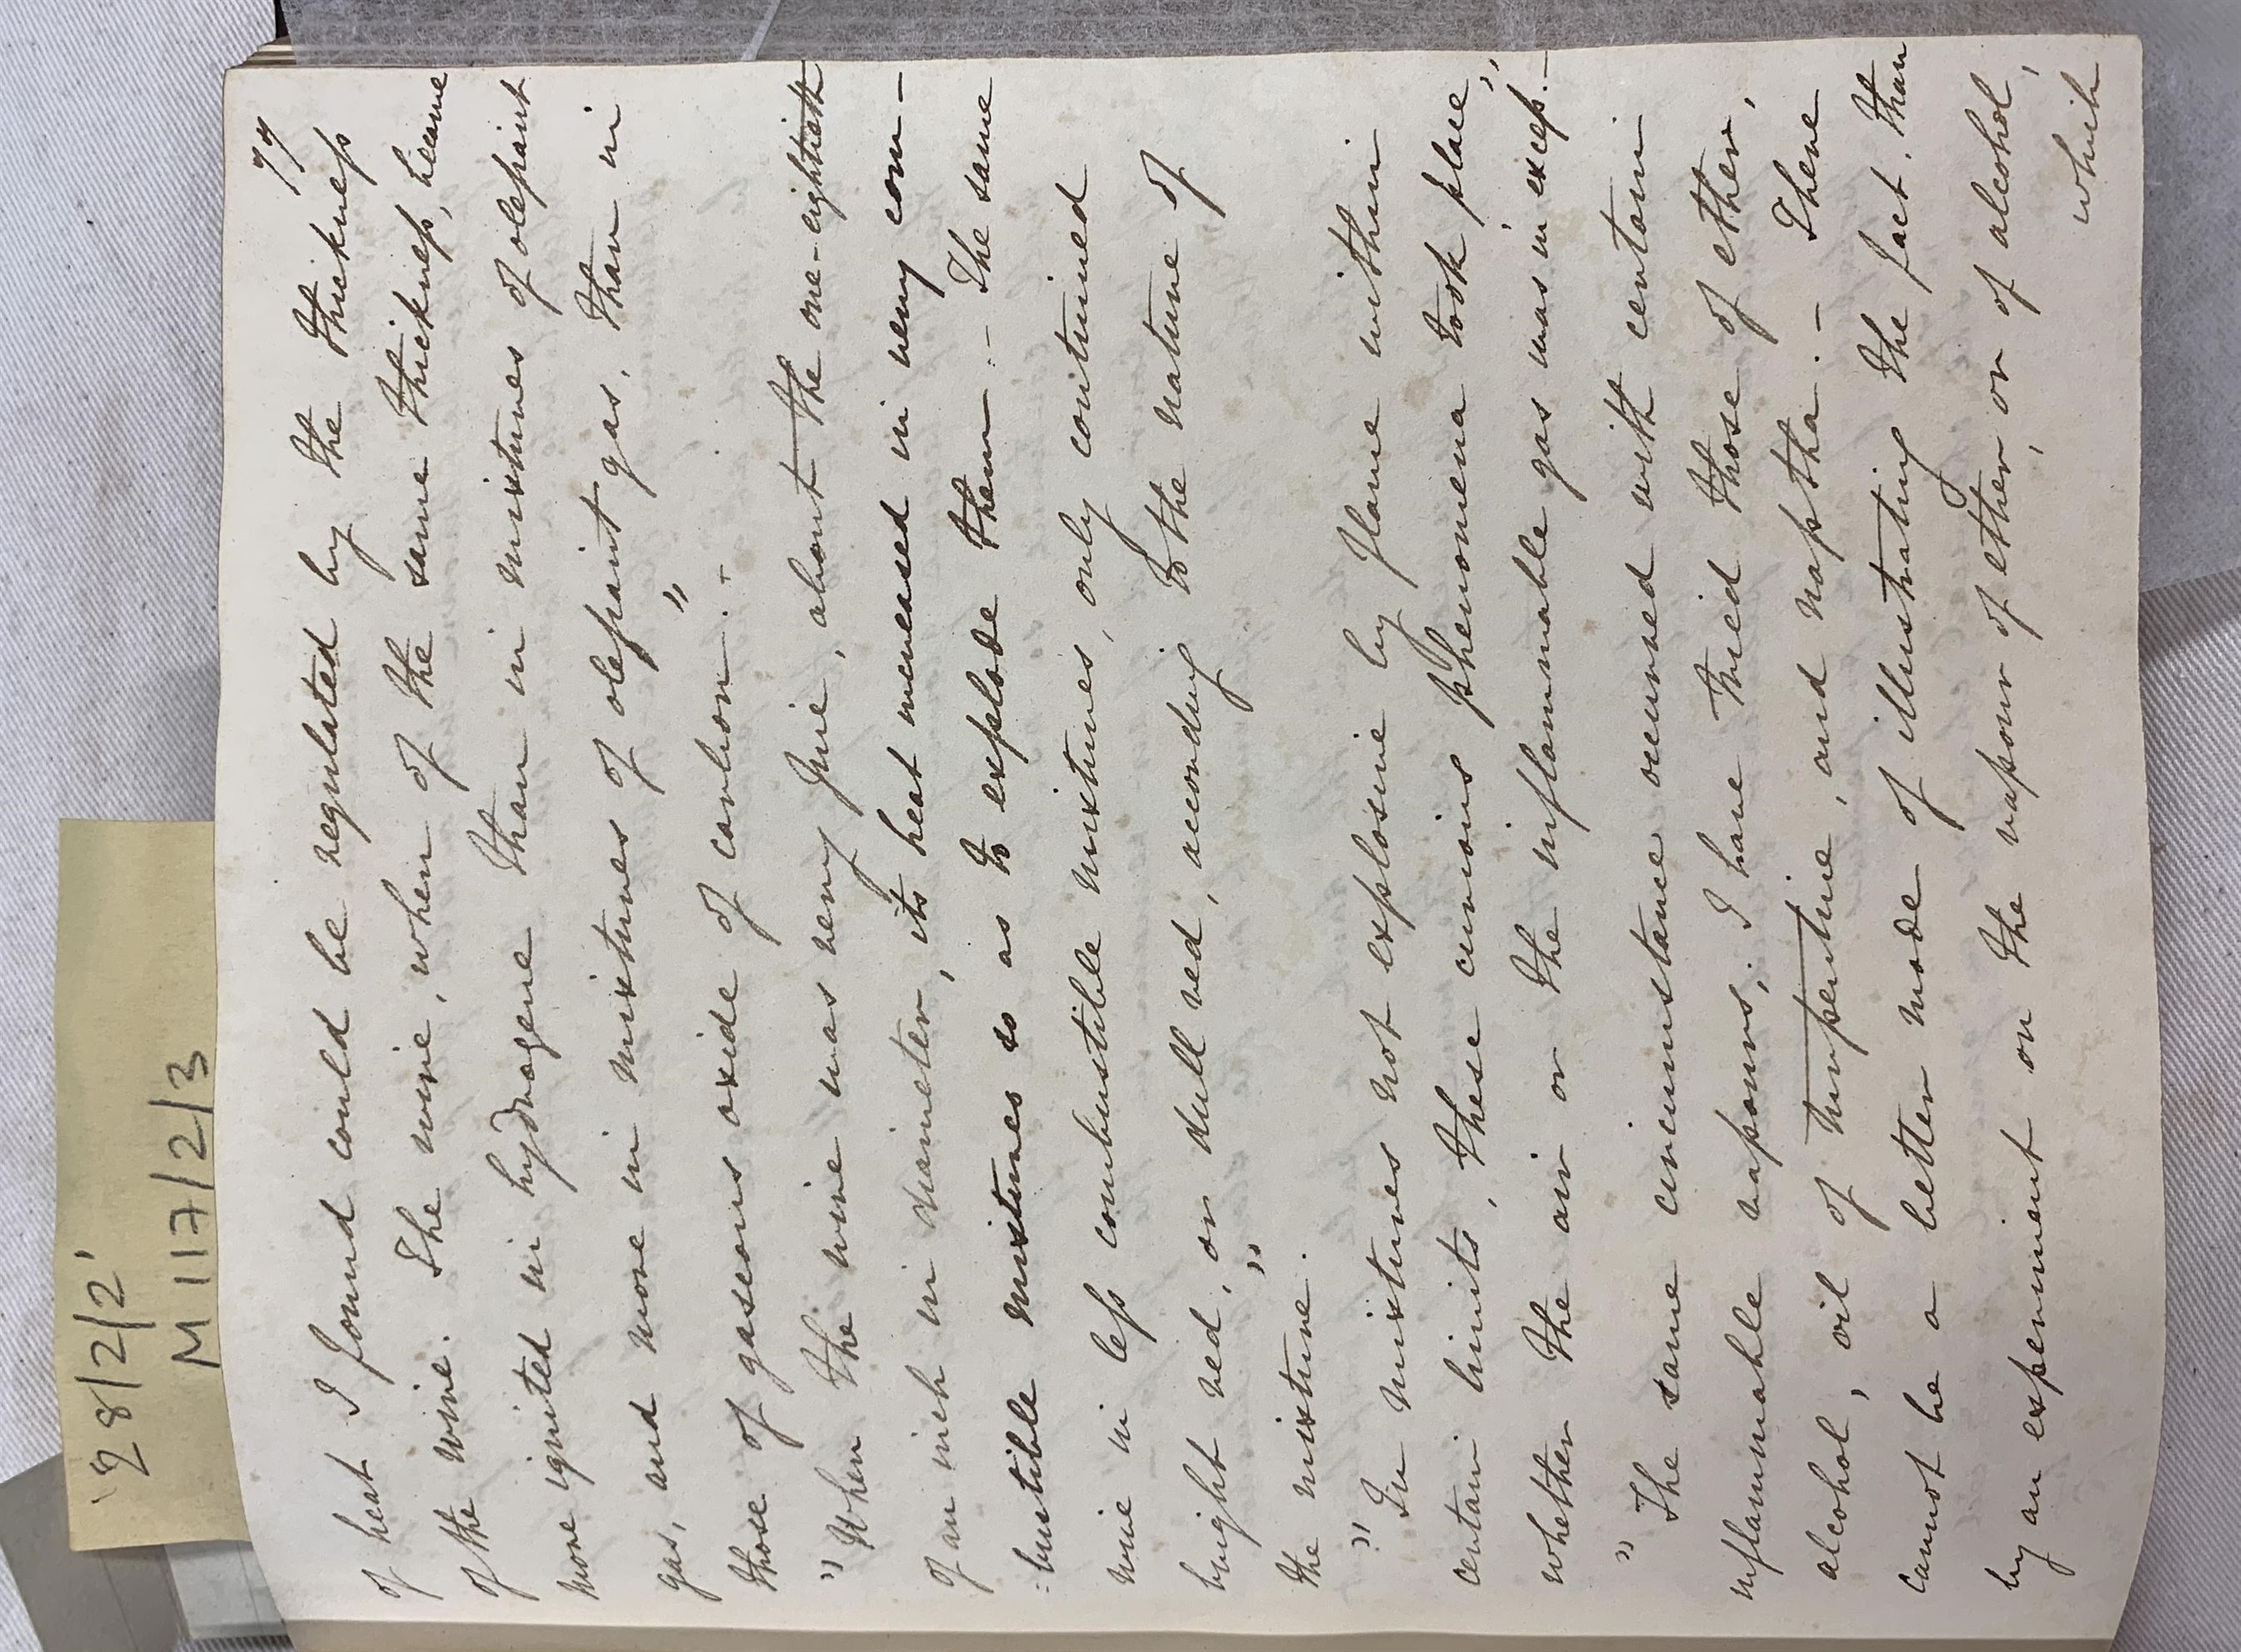 '28/2/2'
M 117/2/3
77
of heat I found could be regulated by the thickness
of the wire. The wire, when of the same thickness, became
more ignited in hydrogene than in mixtures of olefaint
gas, and more in mixtures of olefaint gas, than in
those of gaseous oxide of carbon.-"
" When the wire was very fine, about the one-eightieth
of an inch in diameter, its heat increased in very com-
-bustible mixtures so as to explode them.- The same
wire in less combustible mixtures, only continued
bright red, or dull red, according to the nature of
the mixture."
" In mixtures not explosive by flame within
certain limits, these curious phenomena took place,
whether the air or the inflammable gas was in excess.-"
" The same circumstance occurred with certain
inflammable vapours,. I have tried those of ether,
alcohol, oil of turpentine, and naptha.- There
cannot be a better mode of illustrating the fact, than
by an experiment on the vapour of ether, or of alcohol,
which